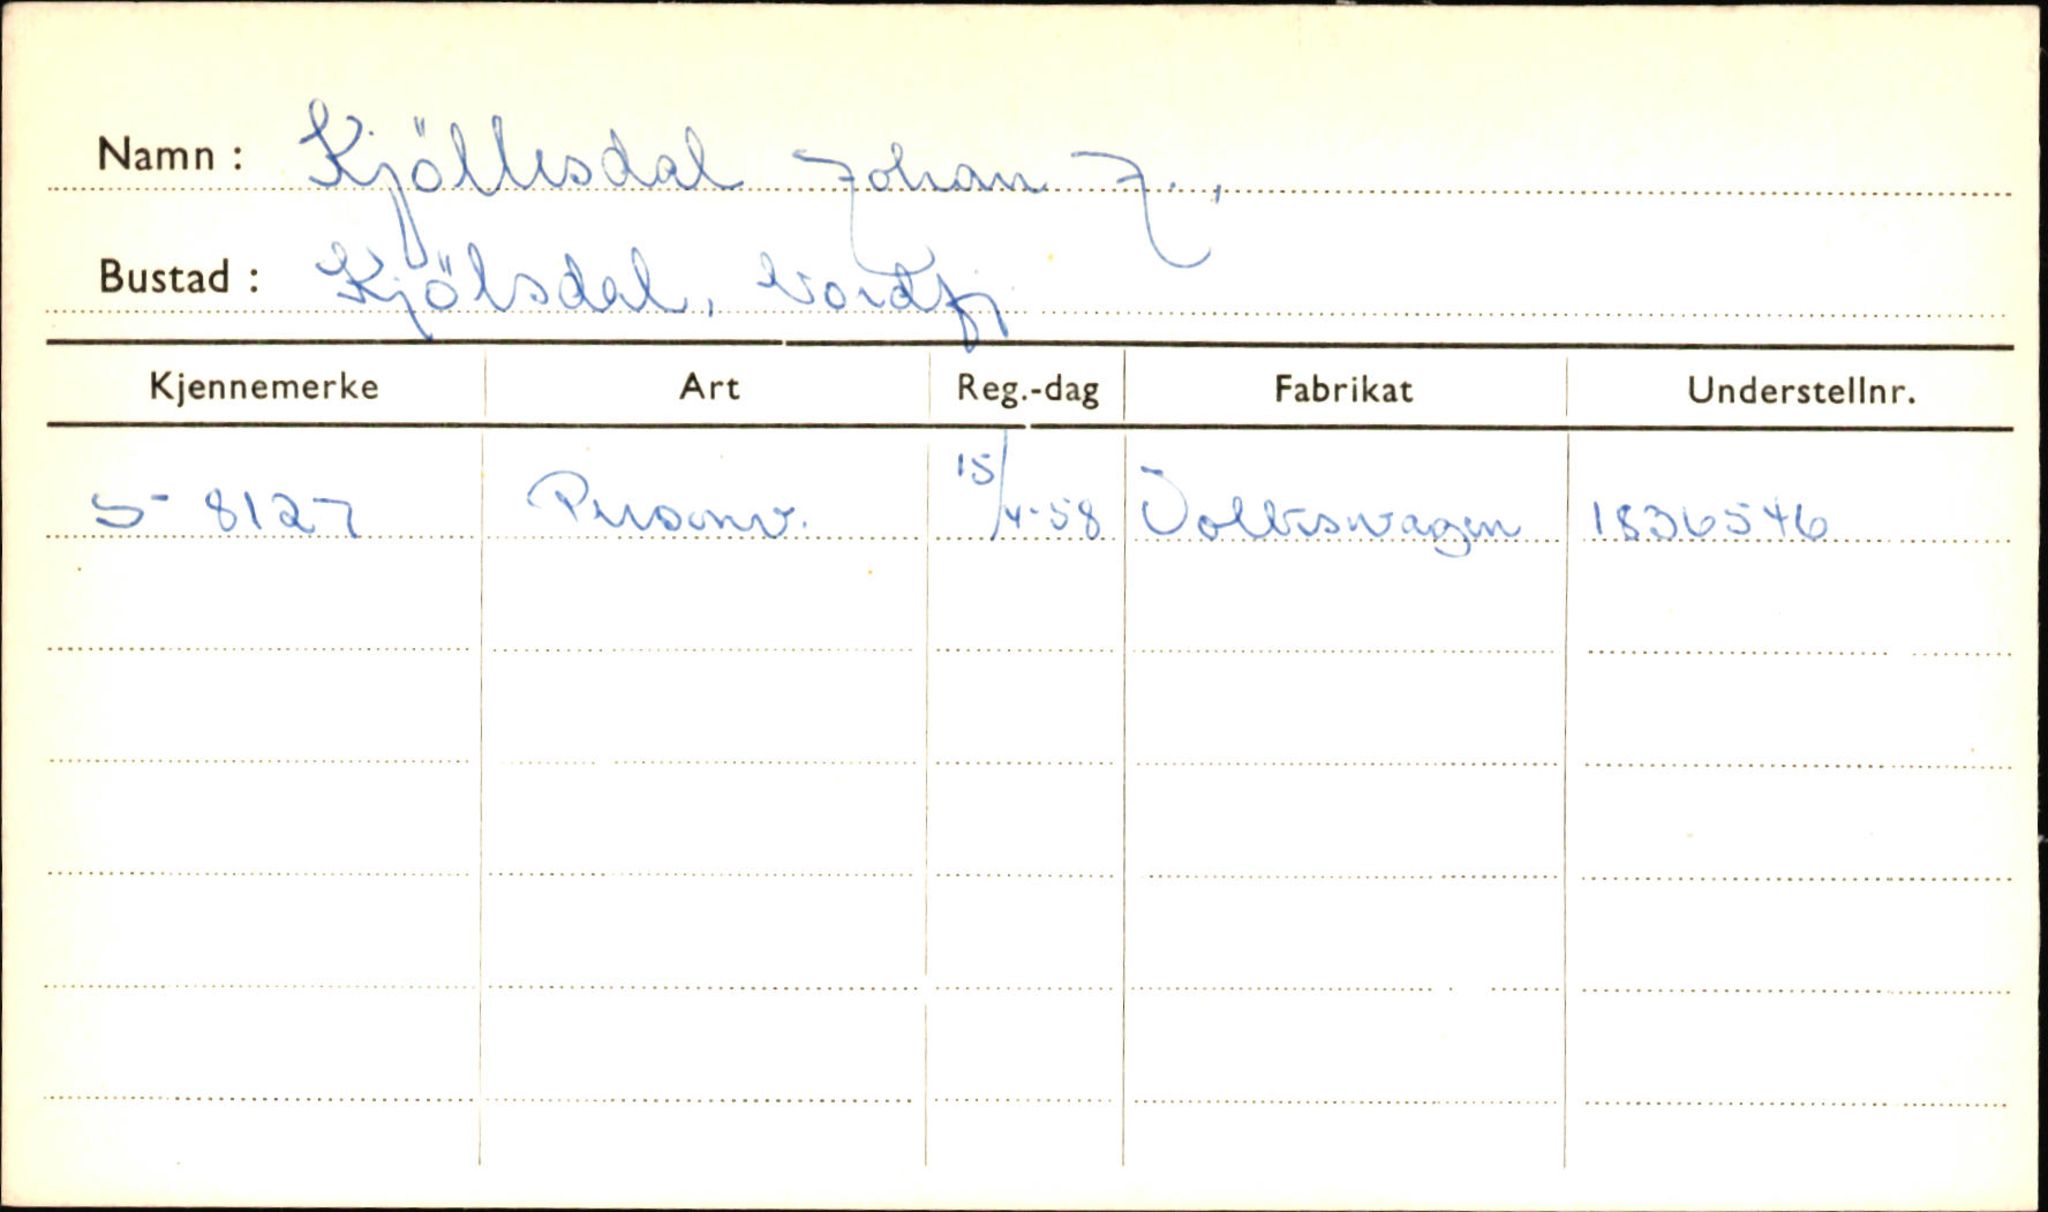 Namn : Kjöllesdal Johan J.,
Bustad : Kjölsdal, Nordfj
Kjennemerke Art Reg.-dag Fabrikat Understellnr.
S- 8127 Personv. 15/4-58 Volkswagen 1836546